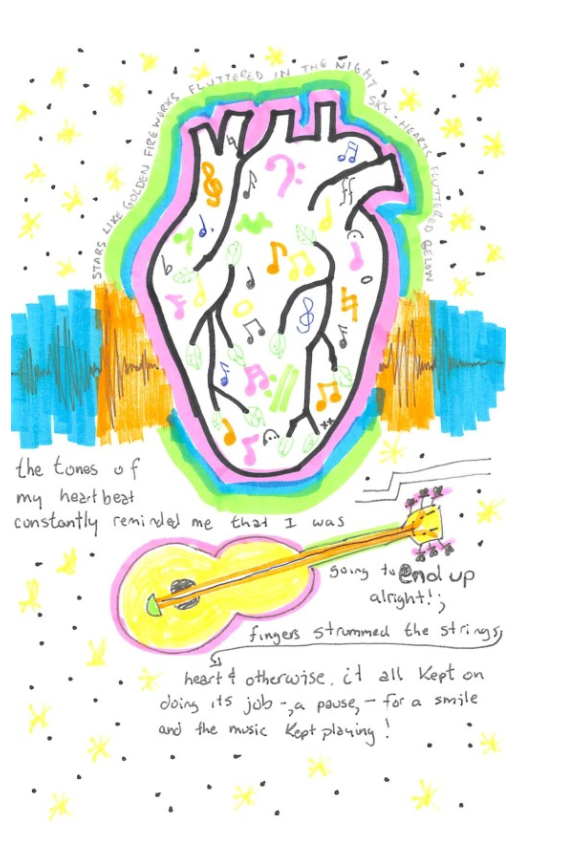 STARS LIKE GOLDEN FIREWORKS FLUTTERED IN THE NIGHT SKY • HEARTS FLUTTERED BELOW
the tones of
my heartbeat
constantly reminded me that I was
going to end up
alright!;
fingers strummed the strings,
heart & otherwise. it all kept on
doing its job -, a pause, - for a smile
and the music kept playing!